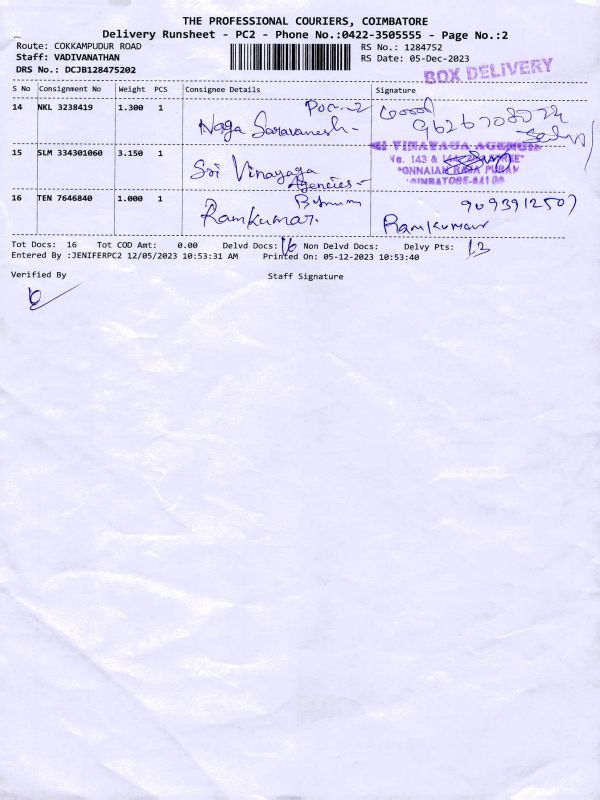 THE PROFESSIONAL COURIERS, COIMBATORE
Delivery Runsheet - PC2 - Phone No.:0422-3505555 - Page No.:2
Route: COKKAMPUDUR ROAD
RS No.: 1284752
Staff: VADIVANATHAN
RS Date: 05-Dec-2023
DRS No.: DCJB128475202
BOX DELIVERY
S No Consignment No Weight PCS Consignee Details Signature
14 NKL 3238419 1.300 1
Naga Saravanesh
15 SLM 334301060 3.150 1
Sri Vinayaga
Agencies
VINAYAGA
No. 143 &
16 TEN 7646840 1.000 1
Ramkumar.
9093912507
Ramkumar
Tot Docs: 16 Tot COD Amt: 0.00 Delvd Docs: 16 Non Delvd Docs: Delvy Pts: 13
Entered By :JENIFERPC2 12/05/2023 10:53:31 AM Printed On: 05-12-2023 10:53:40
Verified By Staff Signature